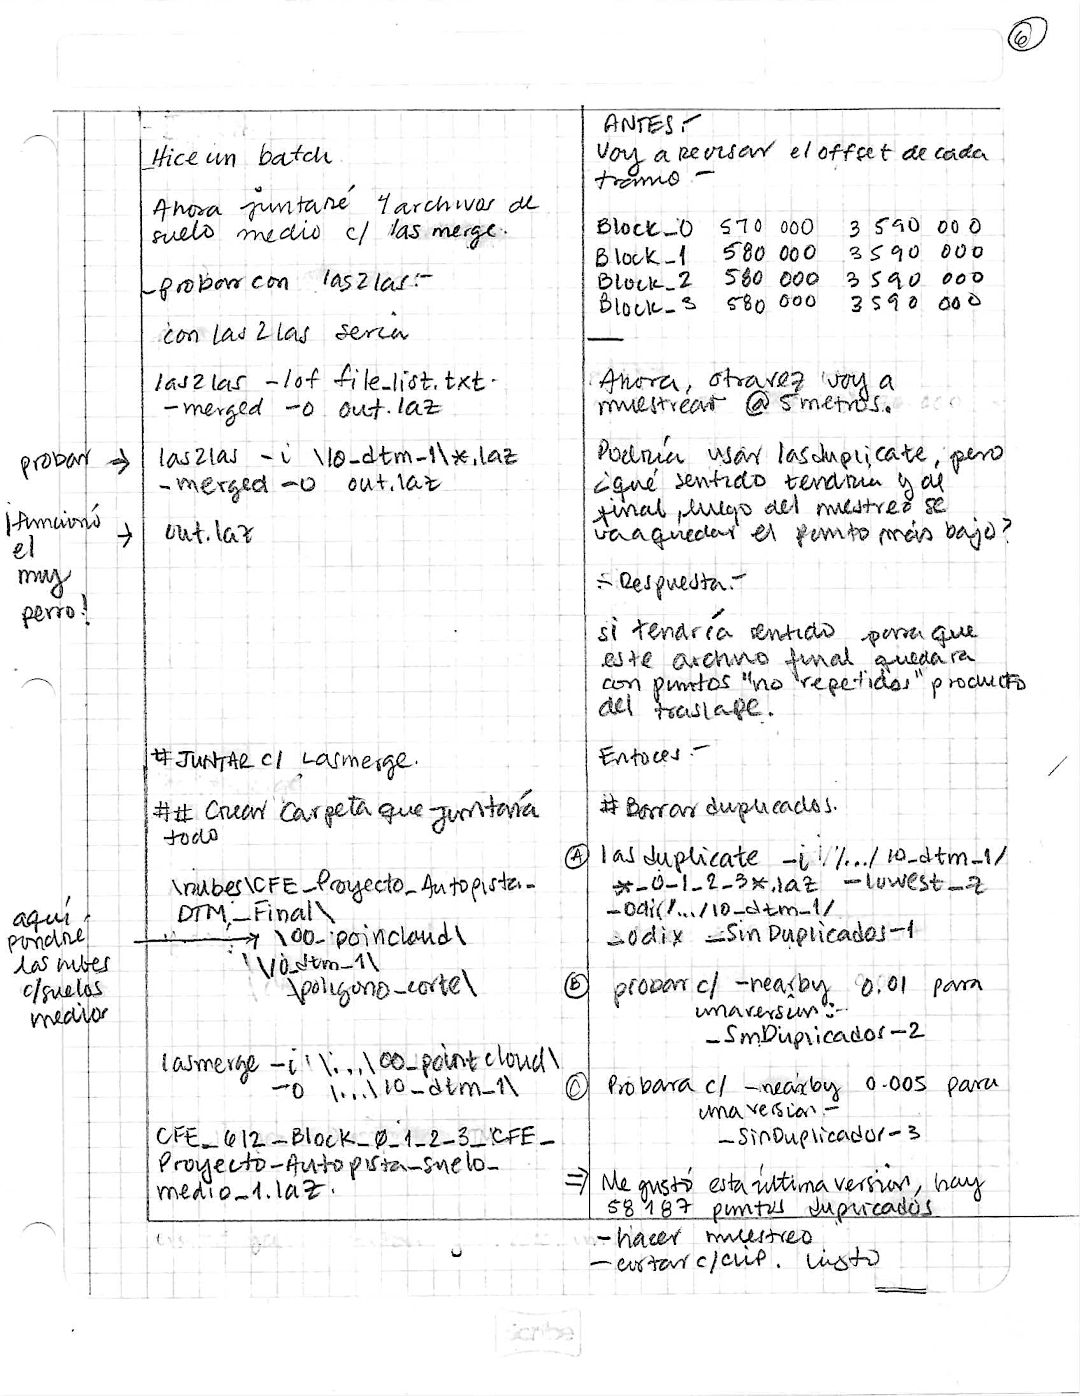 6
Hice un batch
Ahora juntaré 4 archivos de
suelo medio c/ las merge.
- probar con las2las:-
con las2las seria
las2las -lof file_list.txt.
-merged -o out.laz
probar → las2las -i \10_dtm_1\*.laz
-merged -o out.laz
¡funcionó
el
muy
perro!
→ out.laz
# JUNTAR c/ Lasmerge.
## Crear Carpeta que juntaría
todo
\nubes\CFE_Proyecto_Autopista-
DTM_Final\
aquí
pondré
las nubes
c/suelos
medios
→ \00_poincloud\
\10_dtm_1\
\poligono_corte\
lasmerge -i \...\00_pointcloud\
-o \...\10_dtm_1\
CFE_612_Block_0_1_2_3_CFE_
Proyecto-Autopista-suelo-
medio_1.laz.
ANTES:-
Voy a revisar el offset de cada
tramo -
Block_0 570 000 3 590 000
Block_1 580 000 3590 000
Block_2 580 000 3 590 000
Block_3 580 000 3590 000
Ahora, otravez voy a
muestrear @ 5 metros.
Podría usar lasduplicate, pero
¿qué sentido tendria y al
final, luego del muestreo se
va a quedar el punto más bajo?
:- Respuesta:-
si tendría sentido para que
este archivo final quedara
con puntos "no repetidos" producto
del traslape.
Entoces:-
# Borrar duplicados.
A lasduplicate -i \/.../10_dtm_1/
*_0-1_2-3*.laz -lowest_z
-odir/.../10_dtm_1/
-odix _SinDuplicados-1
B probar c/ -nearby 0.01 para
una version:-
_SinDuplicados-2
C Probara c/ -nearby 0.005 para
una version:-
_SinDuplicador-3
⇒ Me gustó esta última version, hay
58 187 puntos duplicados
- hacer muestreo
- cortar c/clip. Listo
Scribe